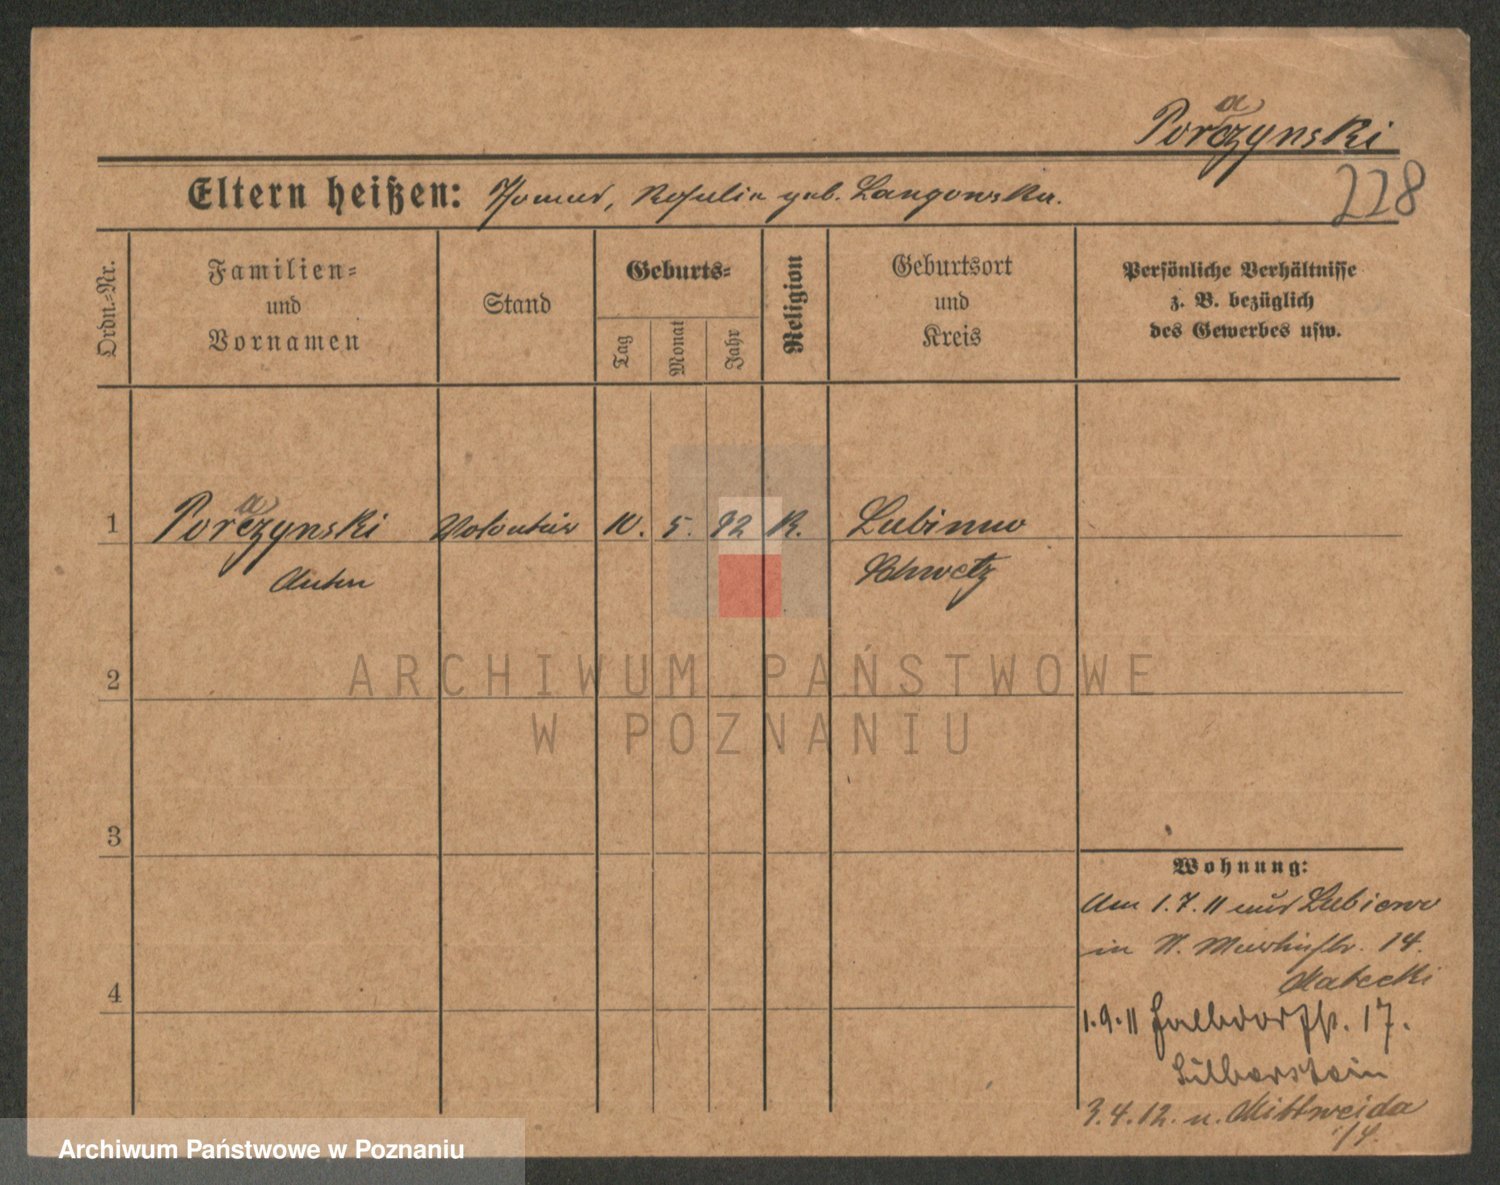 a
Porczynski
Eltern heißen: Thomas, Rosalia geb. Langowska.
228
Ordn.-Nr.
Familien-
und
Vornamen
Stand
Geburts-
Tag
Monat
Jahr
Religion
Geburtsort
und
Kreis
Persönliche Verhältnisse
z. B. bezüglich
des Gewerbes usw.
a
1 Porczynski Volontär 10. 5. 92 K. Lubiewo
Anton Schwetz
2
3
4
Wohnung:
Am 1.7.11 aus Lubiewo
in N. Martinstr. 14.
Matecki
1.9.11 Halbdorfstr. 17.
Silberstein
3.4.12. n. Mittweida
ARCHIWUM PAŃSTWOWE
W POZNANIU
Archiwum Państwowe w Poznaniu